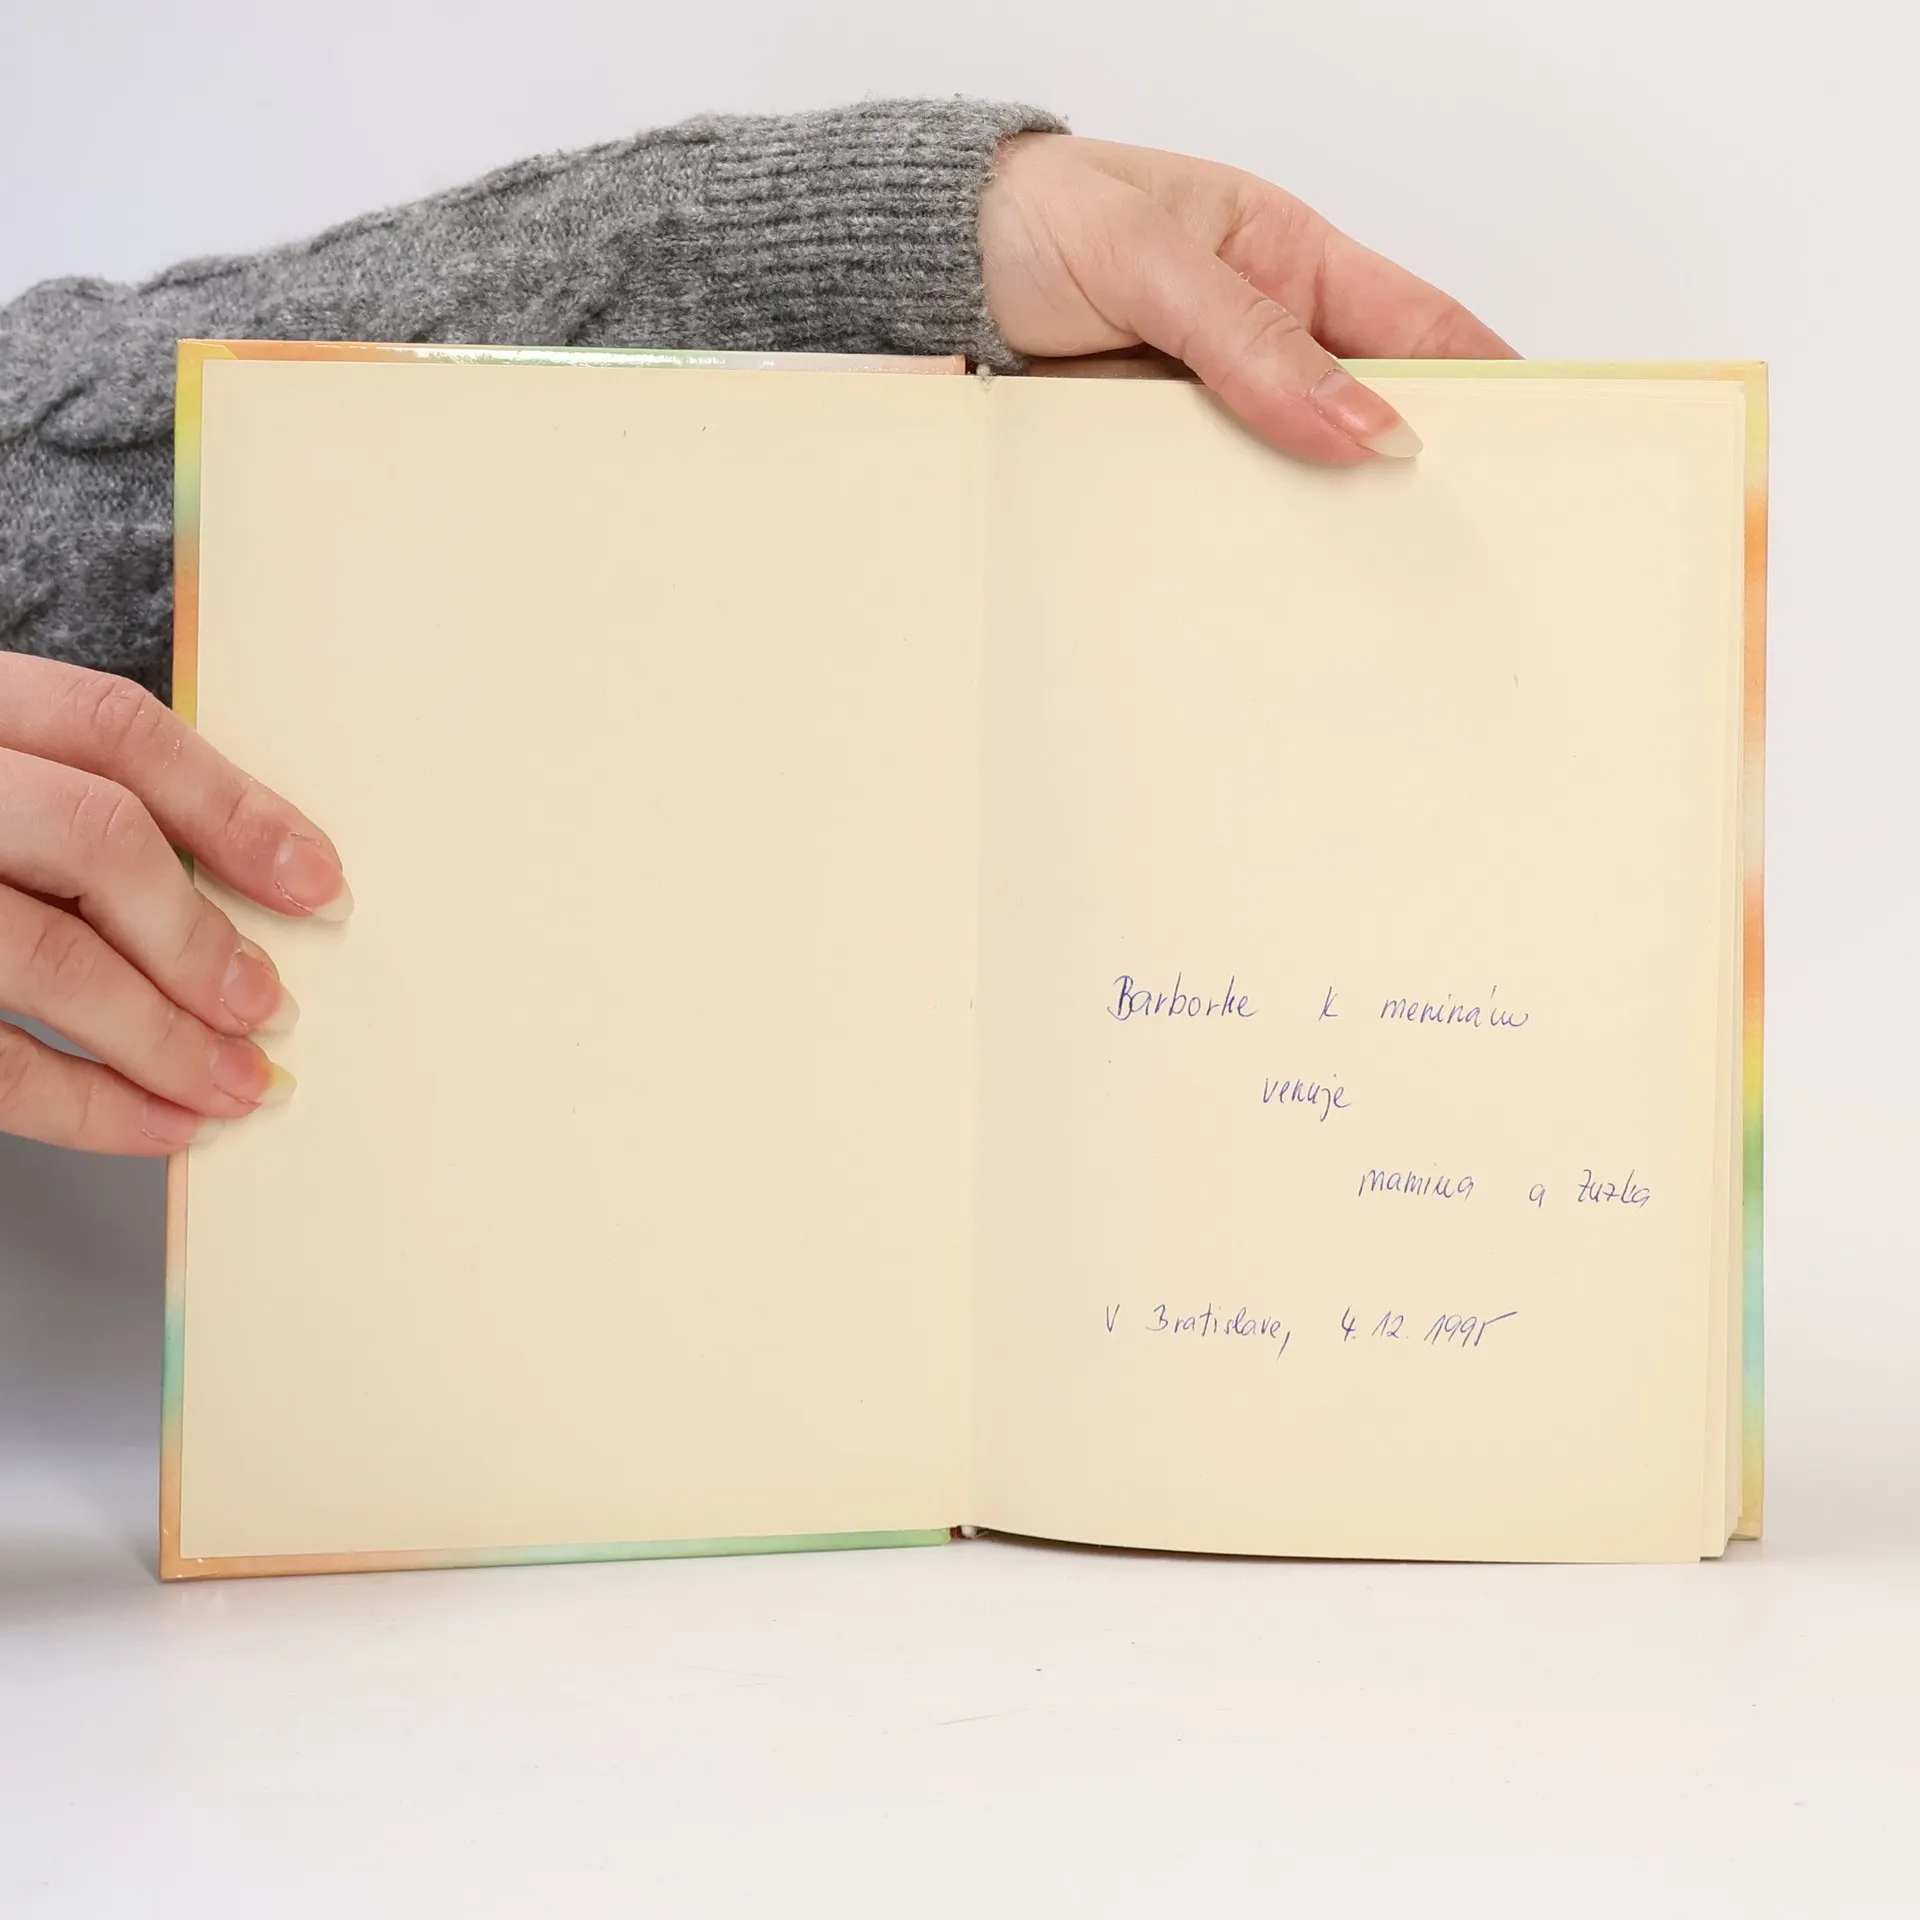 Barborke k meninám
venuje
mamina a Zuzka
V Bratislave, 4. 12. 1995